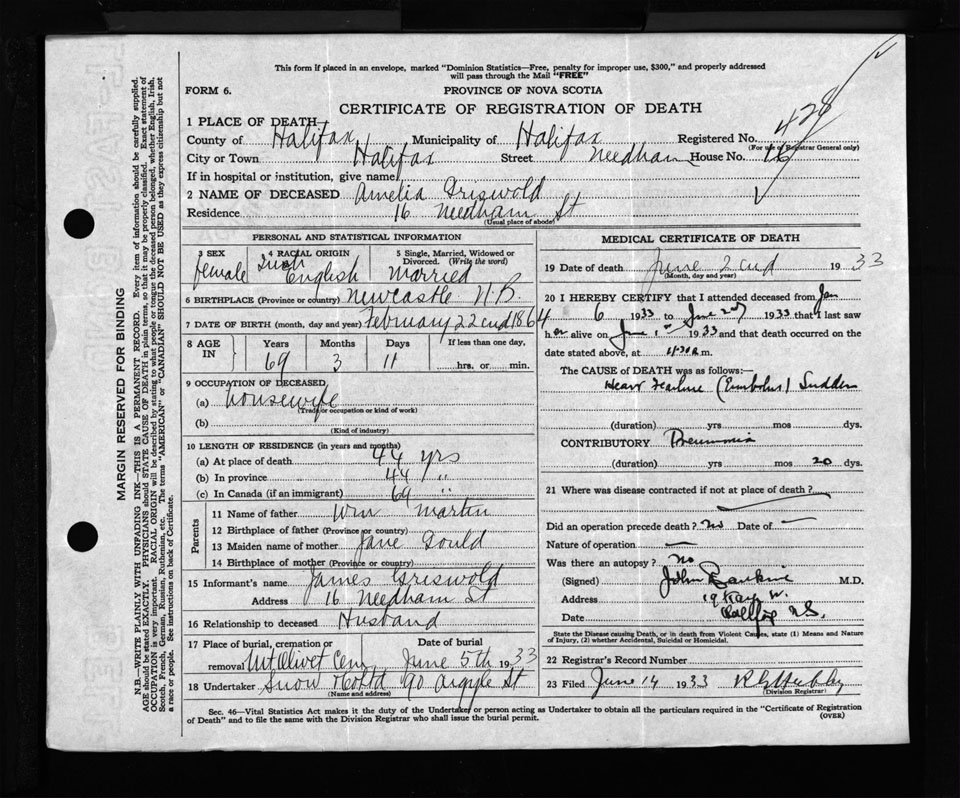 This form if placed in an envelope, marked "Dominion Statistics—Free, penalty for improper use, $300," and properly addressed
will pass through the Mail "FREE"
FORM 6.
PROVINCE OF NOVA SCOTIA
CERTIFICATE OF REGISTRATION OF DEATH
1 PLACE OF DEATH
County of Halifax Municipality of Halifax Registered No. 428
(For use of Registrar General only)
City or Town Halifax Street Needham House No. 16
If in hospital or institution, give name
2 NAME OF DECEASED Amelia Griswold
Residence 16 Needham St
(Usual place of abode)
PERSONAL AND STATISTICAL INFORMATION
3 SEX female
4 RACIAL ORIGIN Irish English
5 Single, Married, Widowed or Divorced. (Write the word) Married
6 BIRTHPLACE (Province or country) Newcastle N.B.
7 DATE OF BIRTH (month, day and year) February 22cnd 1864
8 AGE IN Years 69 Months 3 Days 11 If less than one day, hrs. or min.
9 OCCUPATION OF DECEASED
(a) housewife
(Trade or occupation or kind of work)
(b)
(Kind of industry)
10 LENGTH OF RESIDENCE (in years and months)
(a) At place of death 44 yrs
(b) In province 44 "
(c) In Canada (if an immigrant) 69 "
Parents
11 Name of father Wm Martin
12 Birthplace of father (Province or country)
13 Maiden name of mother Jane Gould
14 Birthplace of mother (Province or country)
15 Informant's name James Griswold
Address 16 Needham St
16 Relationship to deceased Husband
17 Place of burial, cremation or removal Mt Olivet Cem Date of burial June 5th 1933
18 Undertaker Snow & Co Ltd 90 Argyle St
(Name and address)
MEDICAL CERTIFICATE OF DEATH
19 Date of death June 2cnd 1933
(Month, day and year)
20 I HEREBY CERTIFY that I attended deceased from Jan
6 1933 to June 2nd 1933 that I last saw
her alive on June 1st 1933 and that death occurred on
date stated above, at 11.30 a m.
The CAUSE of DEATH was as follows:—
Heart Failure (Embolus) Sudden
(duration) yrs mos dys.
CONTRIBUTORY Pneumonia
(duration) yrs mos 20 dys.
21 Where was disease contracted if not at place of death?
Did an operation precede death? No Date of —
Nature of operation —
Was there an autopsy? No
(Signed) John Rankine M.D.
Address
Date
State the Disease causing Death, or in death from Violent Causes, state (1) Means and Nature
of Injury, (2) whether Accidental, Suicidal or Homicidal.
22 Registrar's Record Number
23 Filed June 14 1933
(Division Registrar)
Sec. 46—Vital Statistics Act makes it the duty of the Undertaker or person acting as Undertaker to obtain all the particulars required in the "Certificate of Registration
of Death" and to file the same with the Division Registrar who shall issue the burial permit.
(OVER)
MARGIN RESERVED FOR BINDING
N.B—WRITE PLAINLY WITH UNFADING INK—THIS IS A PERMANENT RECORD. Every item of information should be carefully supplied.
AGE should be stated EXACTLY. PHYSICIANS should STATE CAUSE OF DEATH in plain terms, so that it may be properly classified. Exact statement of
OCCUPATION is very important. RACIAL ORIGIN will be described by stating to what people or tongue the deceased person belonged, whether English, Irish,
Scotch, French, German, Russian, Ruthenian, etc. The terms "AMERICAN" or "CANADIAN" SHOULD NOT BE USED as they express citizenship but not
a race or people. See instructions on back of Certificate.